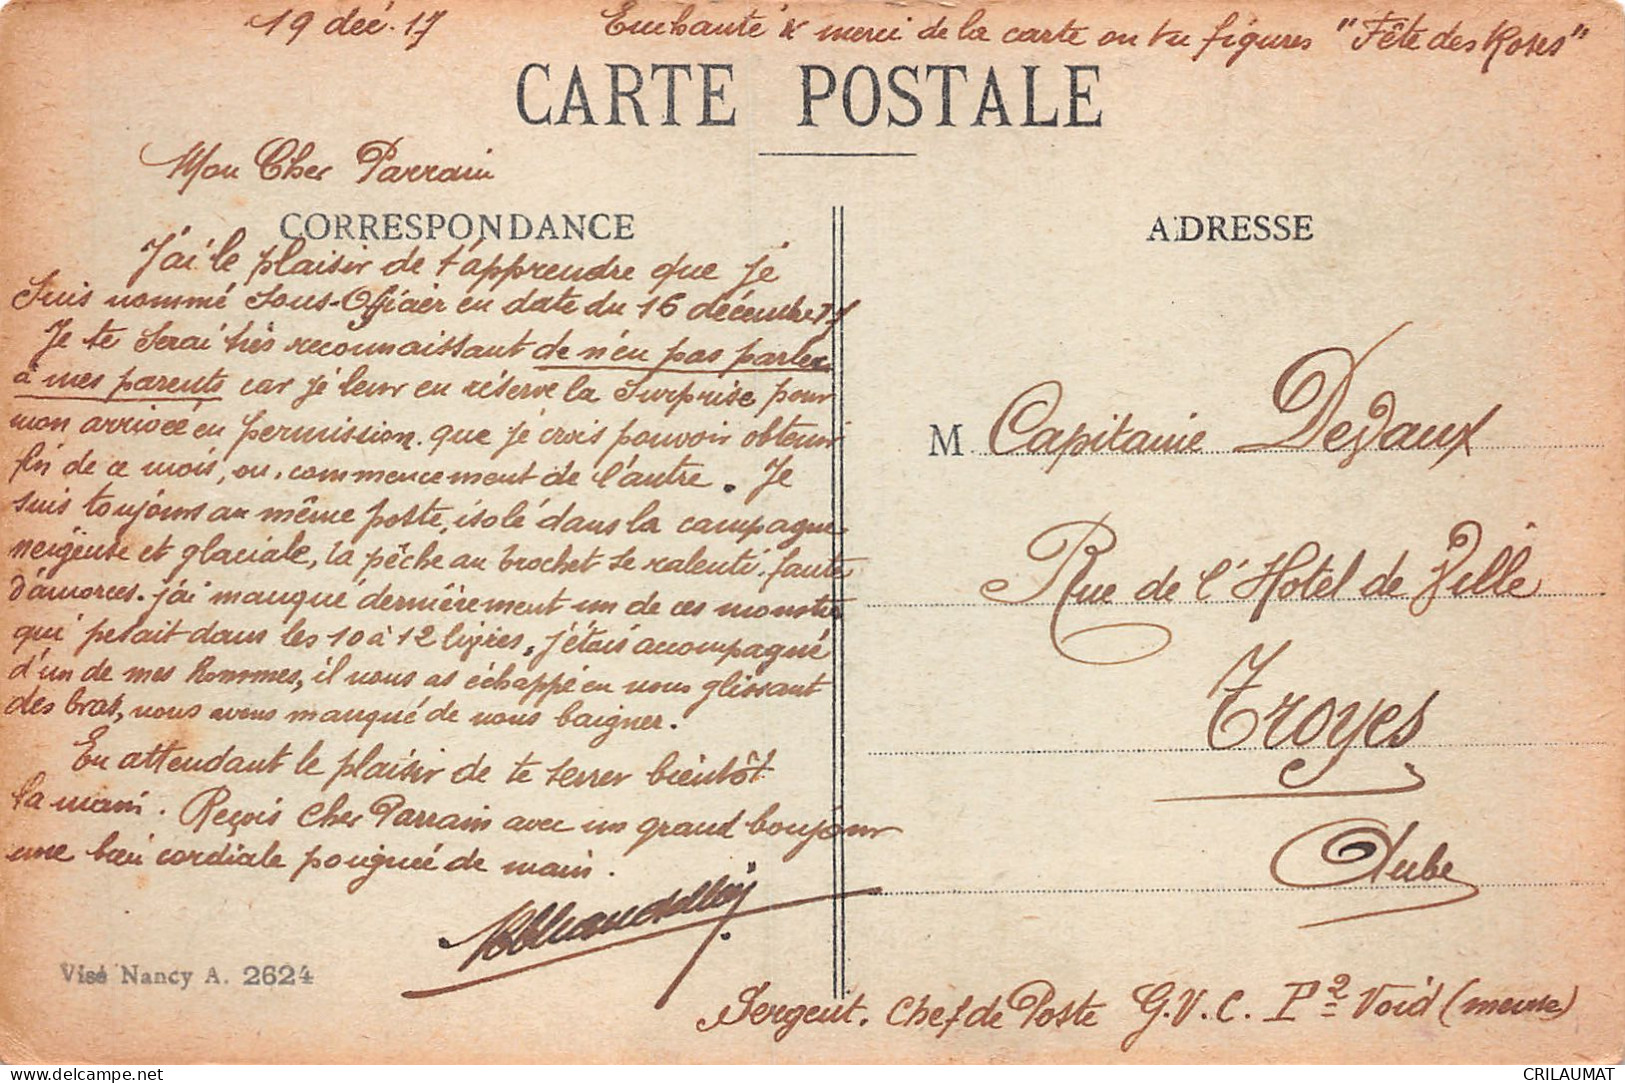 19 déc. 17
Enchanté & merci de la carte ou tu figures "Fête des Roses"
CARTE POSTALE
Mon Cher Parrain
CORRESPONDANCE
J'ai le plaisir de t'apprendre que je
suis nommé Sous-Officier en date du 16 décembre 17
Je te serai très reconnaissant de n'en pas parler
à mes parents car je leur en réserve la surprise pour
mon arrivée en permission que je crois pouvoir obtenir
fin de ce mois, ou, commencement de l'autre. Je
suis toujours au même poste, isolé dans la campagne
neigeuse et glaciale, la pêche au brochet se ralenti faute
d'amorces. j'ai manqué dernièrement un de ces monstres
qui pesait dans les 10 à 12 livres, j'étais accompagné
d'un de mes hommes, il nous as échappé en nous glissant
des bras, nous avons manqué de nous baigner.
En attendant le plaisir de te serrer bientôt
la main. Reçois Cher Parrain avec un grand boujour
une bien cordiale poignée de main.
Visé Nancy A. 2624
ADRESSE
M Capitaine Devaux
Rue de l'Hotel de Ville
Troyes
Aube
Sergent. Chef de Poste G.V.C. P2 Void (meuse)
CRILAUMAT